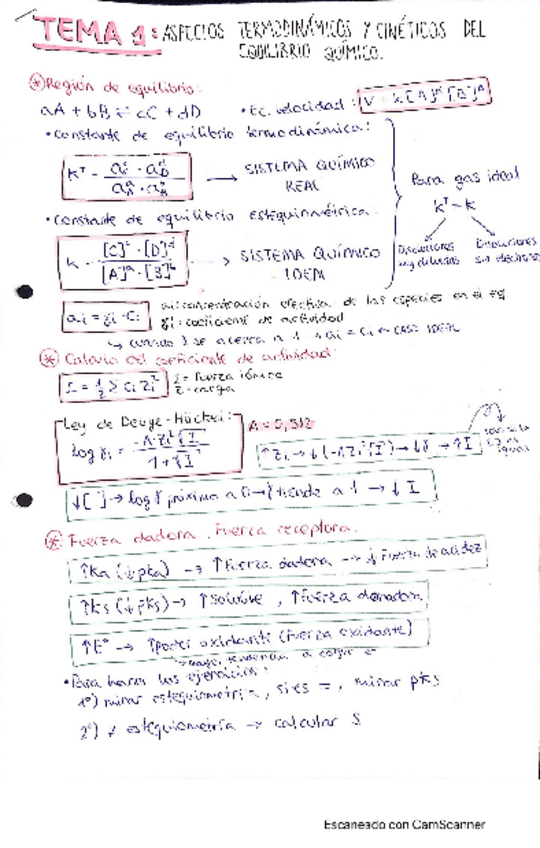 TEMA 1: ASPECTOS TERMODINÁMICOS Y CINÉTICOS DEL
EQUILIBRIO QUÍMICO.
* Región de equilibrio:
aA + bB ⇌ cC + dD • Ec. velocidad: V = k[A]ⁿ[B]ⁿ
• constante de equilibrio termodinámica:
SISTEMA QUÍMICO
REAL
Para gas ideal
Kᵀ ~ K
• constante de equilibrio estequiométrica:
K = [C]ᶜ · [D]ᵈ / [A]ᵃ · [B]ᵇ → SISTEMA QUÍMICO
IDEAL
Disoluciones
muy diluidas
Disoluciones
sin electrolitos
ai = γi · Ci
ai: concentración efectiva de las especies en el eq
γi: coeficiente de actividad
↳ cuando γ se acerca a 1 → ai = Ci ← CASO IDEAL
* Calculo del coeficiente de actividad:
I = 1/2 Σ Ci Zi² I = Fuerza iónica
Z = carga
Ley de Deuye-Hückel: A = 0,512
log γi = -A·Zi²√I / 1+√I
↑Zi → ↓(-AZi²√I) → ↓γ → ↑I
igual
↓[ ] → log γ próximo a 0 → γ tiende a 1 → ↓ I
* Fuerza dadora, Fuerza receptora.
↑Ka (↓pka) → ↑Fuerza dadora → ↓ Fuerza de acidez
↑Ks (↓pKs) → ↑soluble, ↑Fuerza donadora
↑E° → ↑poder oxidante (Fuerza oxidante)
mayor tendencia a coger e⁻
• Para hacer los ejercicios:
1º) mirar estequiometría, si es =, mirar pKs
2º) ≠ estequiometría → calcular S
Escaneado con CamScanner